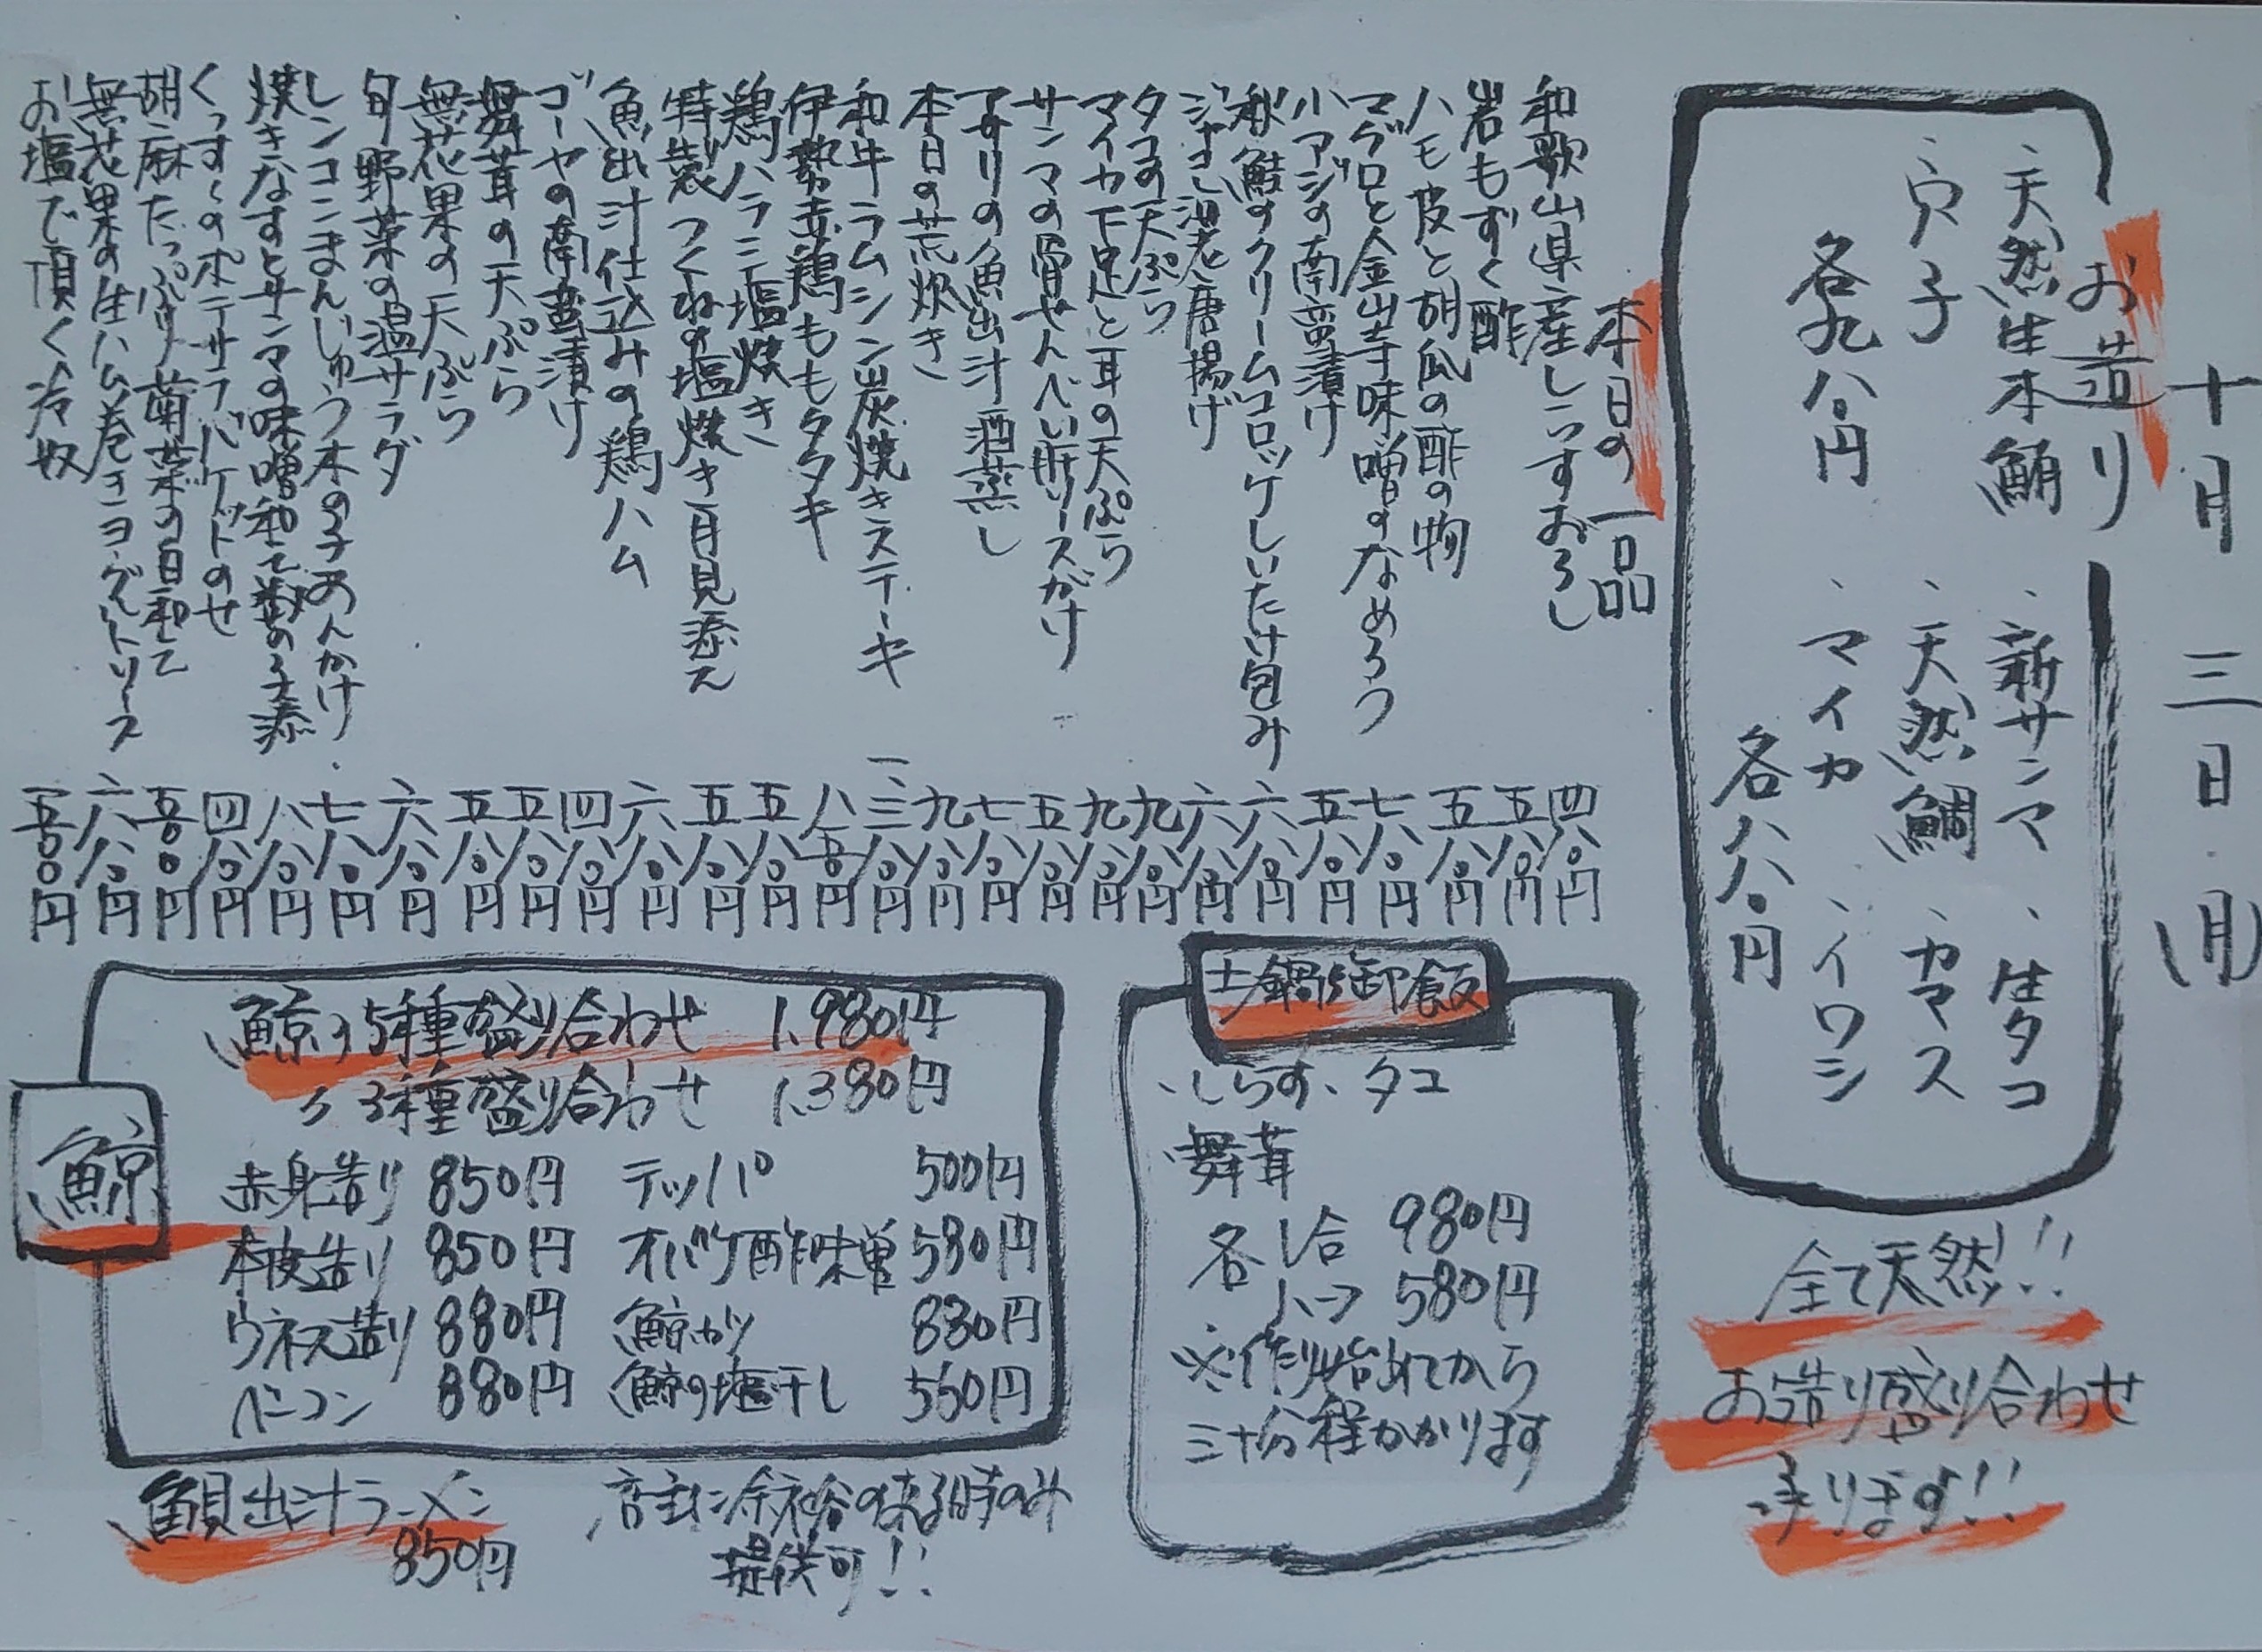 十月三日(月)
お造り
、天然生本鮪 、新サンマ 、生タコ
、穴子 、天然鯛 、カマス
各九八〇円 、マイカ 、イワシ
各八八〇円
全て天然!!
お造り盛り合わせ
承ります!!
本日の一品
和歌山県産しらすおろし 四八〇円
岩もずく酢 五八〇円
ハモ皮と胡瓜の酢の物 五八〇円
マグロと金山寺味噌のなめろう 七八〇円
小アジの南蛮漬け 五八〇円
秋鮭のクリームコロッケしいたけ包み 六八〇円
ジャコと海老唐揚げ 六八〇円
タコの天ぷら 九八〇円
マイカ下足と耳の天ぷら 九八〇円
サンマの骨せんべい肝ソースがけ 五八〇円
アサリの魚出汁酒蒸し 七八〇円
本日の荒炊き 九八〇円
和牛ラムシン炭焼きステーキ 一、三八〇円
伊勢赤鶏ももタタキ 八五〇円
鶏ハラミ塩焼き 五八〇円
特製つくねの塩焼き月見添え 五八〇円
魚出汁仕込みの鶏ハム 六八〇円
ゴーヤの南蛮漬け 四八〇円
舞茸の天ぷら 五八〇円
無花果の天ぷら 五八〇円
旬野菜の温サラダ 六八〇円
レンコンまんじゅう木の子あんかけ 七八〇円
焼きなすとサンマの味噌和え茗の子添 八八〇円
くっすくのポテサラバゲットのせ 四八〇円
胡麻たっぷり菊菜の白和え 五〇〇円
無花果の生ハム巻きヨーグルトソース 六八〇円
お塩で頂く冷奴 五〇〇円
土鍋御飯
、しらす、タコ
、舞茸
各 1合 980円
ハーフ 580円
※作り始めてから
三十分程かかります
鯨
、鯨の5種盛り合わせ 1,980円
〃 3種盛り合わせ 1,380円
赤身造り 850円 テッパ 500円
本皮造り 850円 オバケ酢味噌 580円
ウネス造り 880円 鯨カツ 880円
ベーコン 880円 鯨の塩干し 550円
、魚貝出汁ラーメン
850円
店主に余裕の有る時のみ
提供可!!